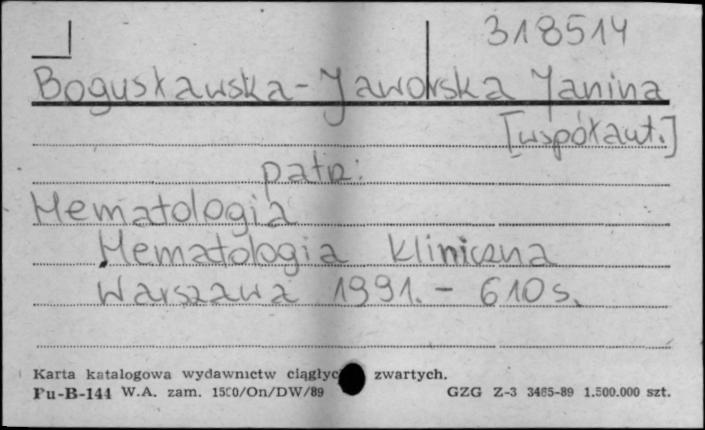 318514
Bogusławska-Jaworska Janina
[współaut.]
patrz:
Hematologia
Hematologia kliniczna
Warszawa 1991. - 610 s.
Karta katalogowa wydawnictw ciągłyc zwartych.
Pu-B-144 W.A. zam. 1500/On/DW/89 GZG Z-3 3465-89 1.500.000 szt.